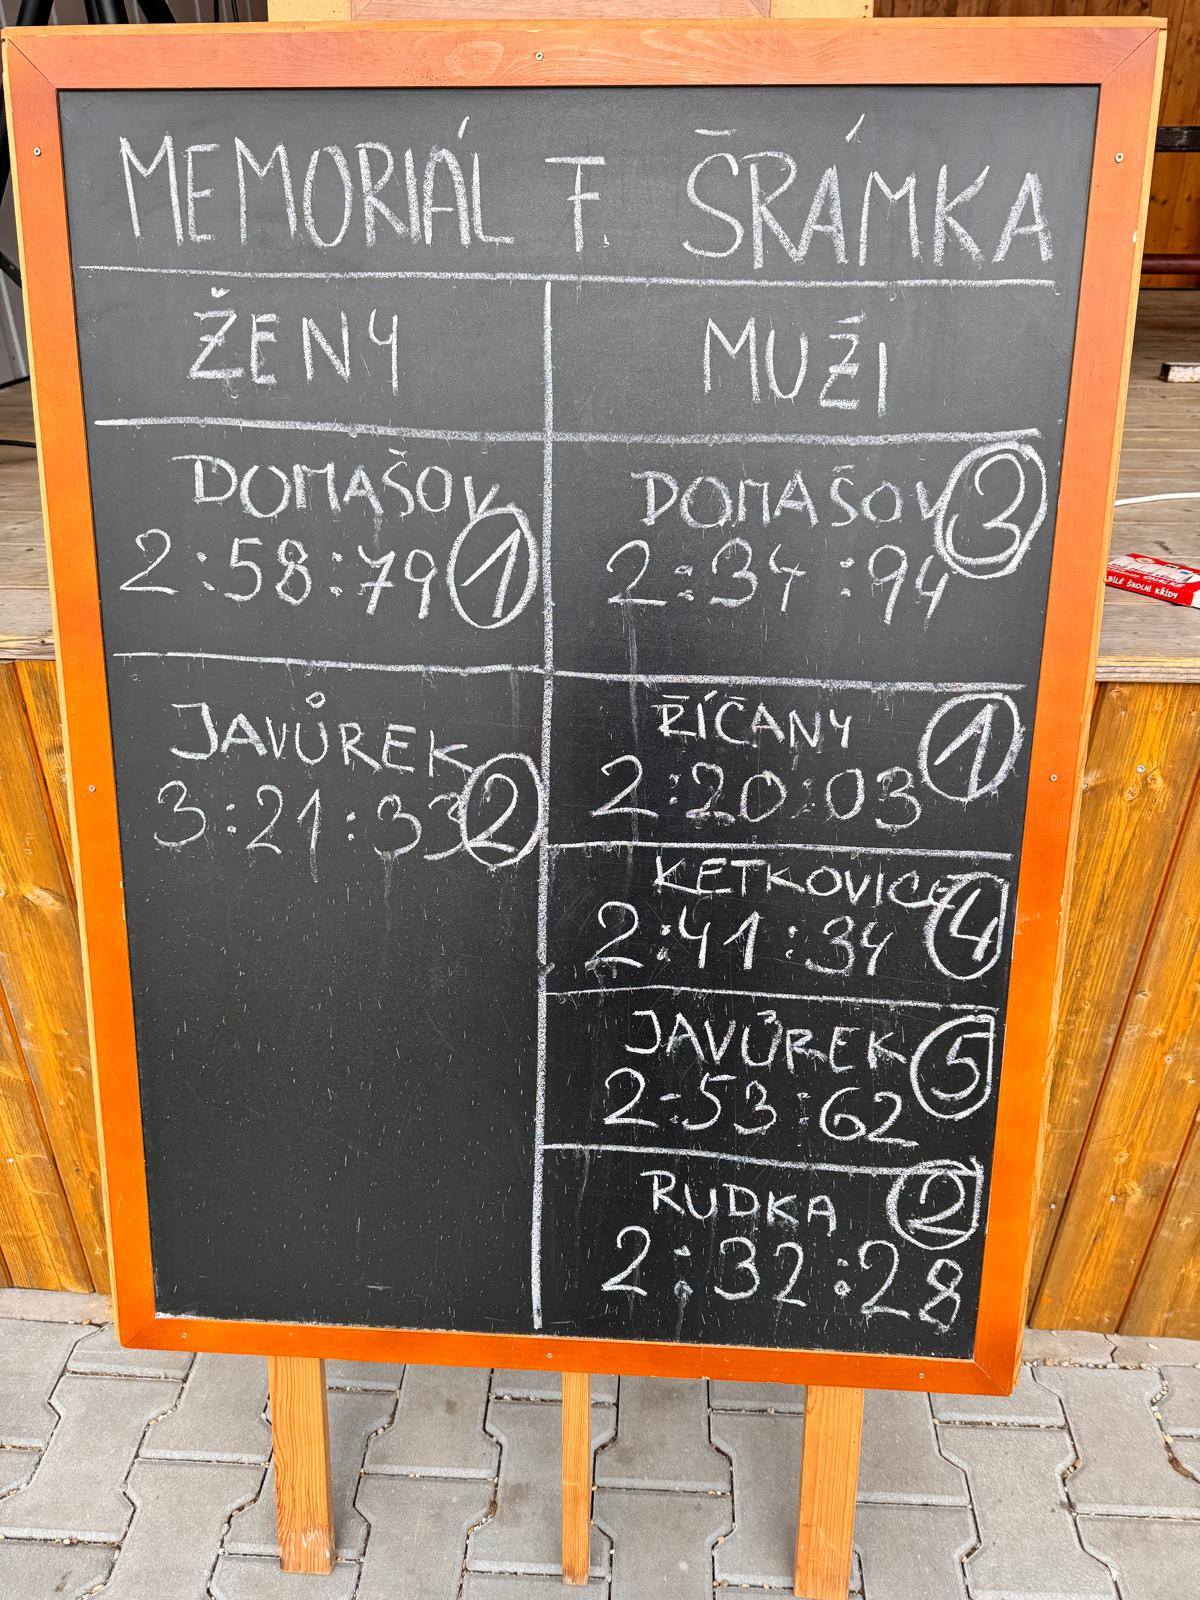 MEMORIÁL F. ŠRÁMKA
ŽENY
DOMAŠOV
2:58:79 1
JAVŮREK
3:21:33 2
MUŽI
DOMAŠOV 3
2:34:94
ŘÍČANY 1
2:20:03
KETKOVICE 4
2:41:34
JAVŮREK 5
2:53:62
RUDKA 2
2:32:28
BÍLÉ ŠKOLNÍ KŘÍDY